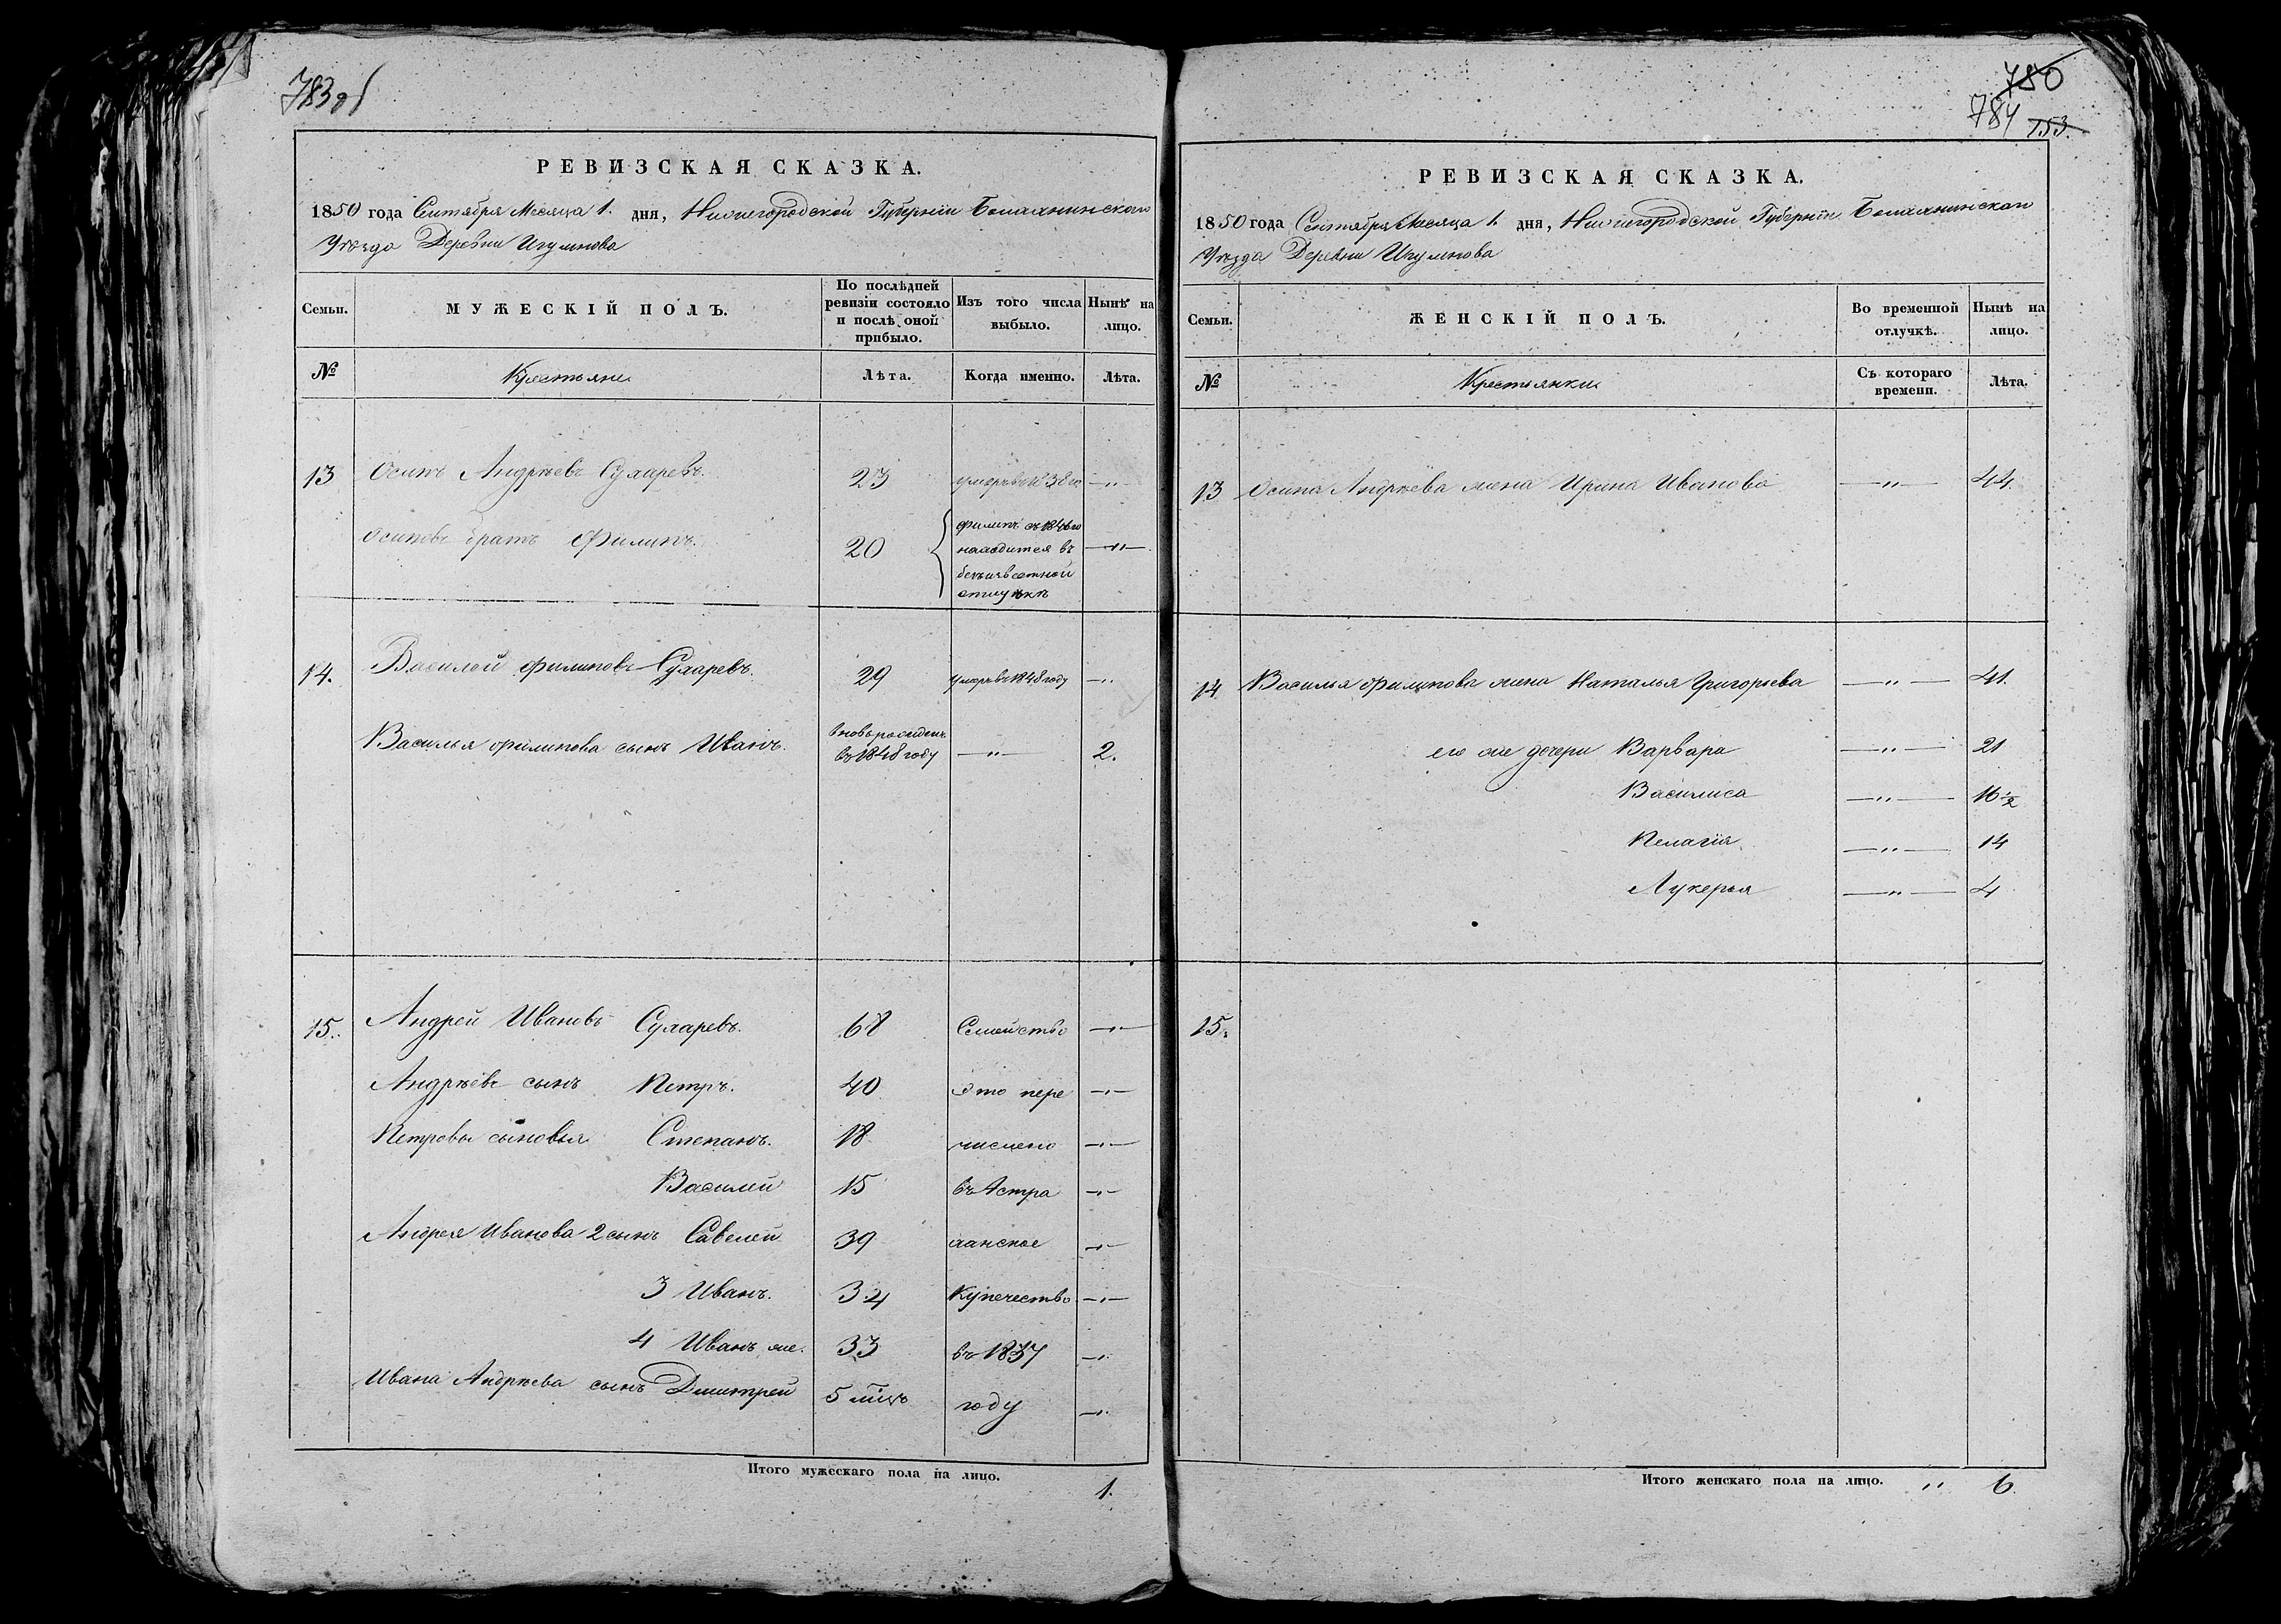 783об
РЕВИЗСКАЯ СКАЗКА.
1850 года Сентября Месяца 1. дня, Нижегородской Губернiи Балахнинскаго
Уѣзда Деревни Игумнова
Семьи.
МУЖЕСКІЙ ПОЛЪ.
По послѣдней ревизіи состояло и послѣ оной прибыло.
Изъ того числа выбыло.
Нынѣ на лицо.
№
Крестьяне
Лѣта.
Когда именно.
Лѣта.
13 Осипъ Андрѣевъ Сухаревъ. 23 умеръ въ 1838 го —"—
Осиповъ братъ Филипъ. 20
Филипъ съ 1846 го
находится въ —"—
безъизвестной
отлучкѣ
14. Василей Филиповъ Сухаревъ. 29 умеръ въ 1848 году —"
Василья Филипова сынъ Иванъ.
вновь рожденъ
въ 1848 году —"— 2.
15. Андрей Ивановъ Сухаревъ. 68 Семейство —"—
Андрѣевъ сынъ Петръ. 40 это пере —"—
Петровы сыновья Степанъ. 18 числено —"—
Василей 15 въ Астра —"—
Андрея Иванова 2 сынъ Савелей 39 ханское —"—
3 Иванъ. 34 Купечество —"—
4 Иванъ же. 33 въ 1837 —"
Ивана Андрѣева сынъ Дмитрей 5 мѣцъ году —"
Итого мужескаго пола на лицо.
1.
780
784
153.
РЕВИЗСКАЯ СКАЗКА.
1850 года Сентября Месяца 1. дня, Нижегородской Губернiи Балахнинскаго
Уѣзда Деревни Игумнова
Семьи.
ЖЕНСКІЙ ПОЛЪ.
Во временной отлучкѣ.
Нынѣ на лицо.
№
Крестьянки
Съ котораго времени.
Лѣта.
13 Осипа Андрѣева жена Ирина Иванова —"— 44.
14 Василья Филипова жена Наталья Григорьева —"— 41.
его же дочери Варвара —"— 21
Василиса —"— 16 ½
Пелагія —"— 14
Лукерья —"— 4
15.
Итого женскаго пола на лицо. " 6.